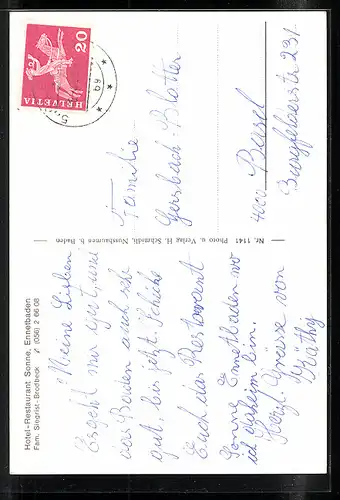 Hotel-Restaurant Sonne, Ennetbaden
Fam. Siegrist-Brotbeck (056) 2 66 08
Meine Lieben
Es geht mir gut, und
das Baden auch sehr
gut bis jetzt. Schicke
Euch das Restaurant
Sonne Ennetbaden wo
ich daheim bin.
Herzl. Grüsse von
Käthy
Nr. 1141 Photo u. Verlag H. Schmidli, Nussbaumen b. Baden
HELVETIA
20
69
Familie
Gersbach-Blatter
4000 Basel
Burgfelderstr 231